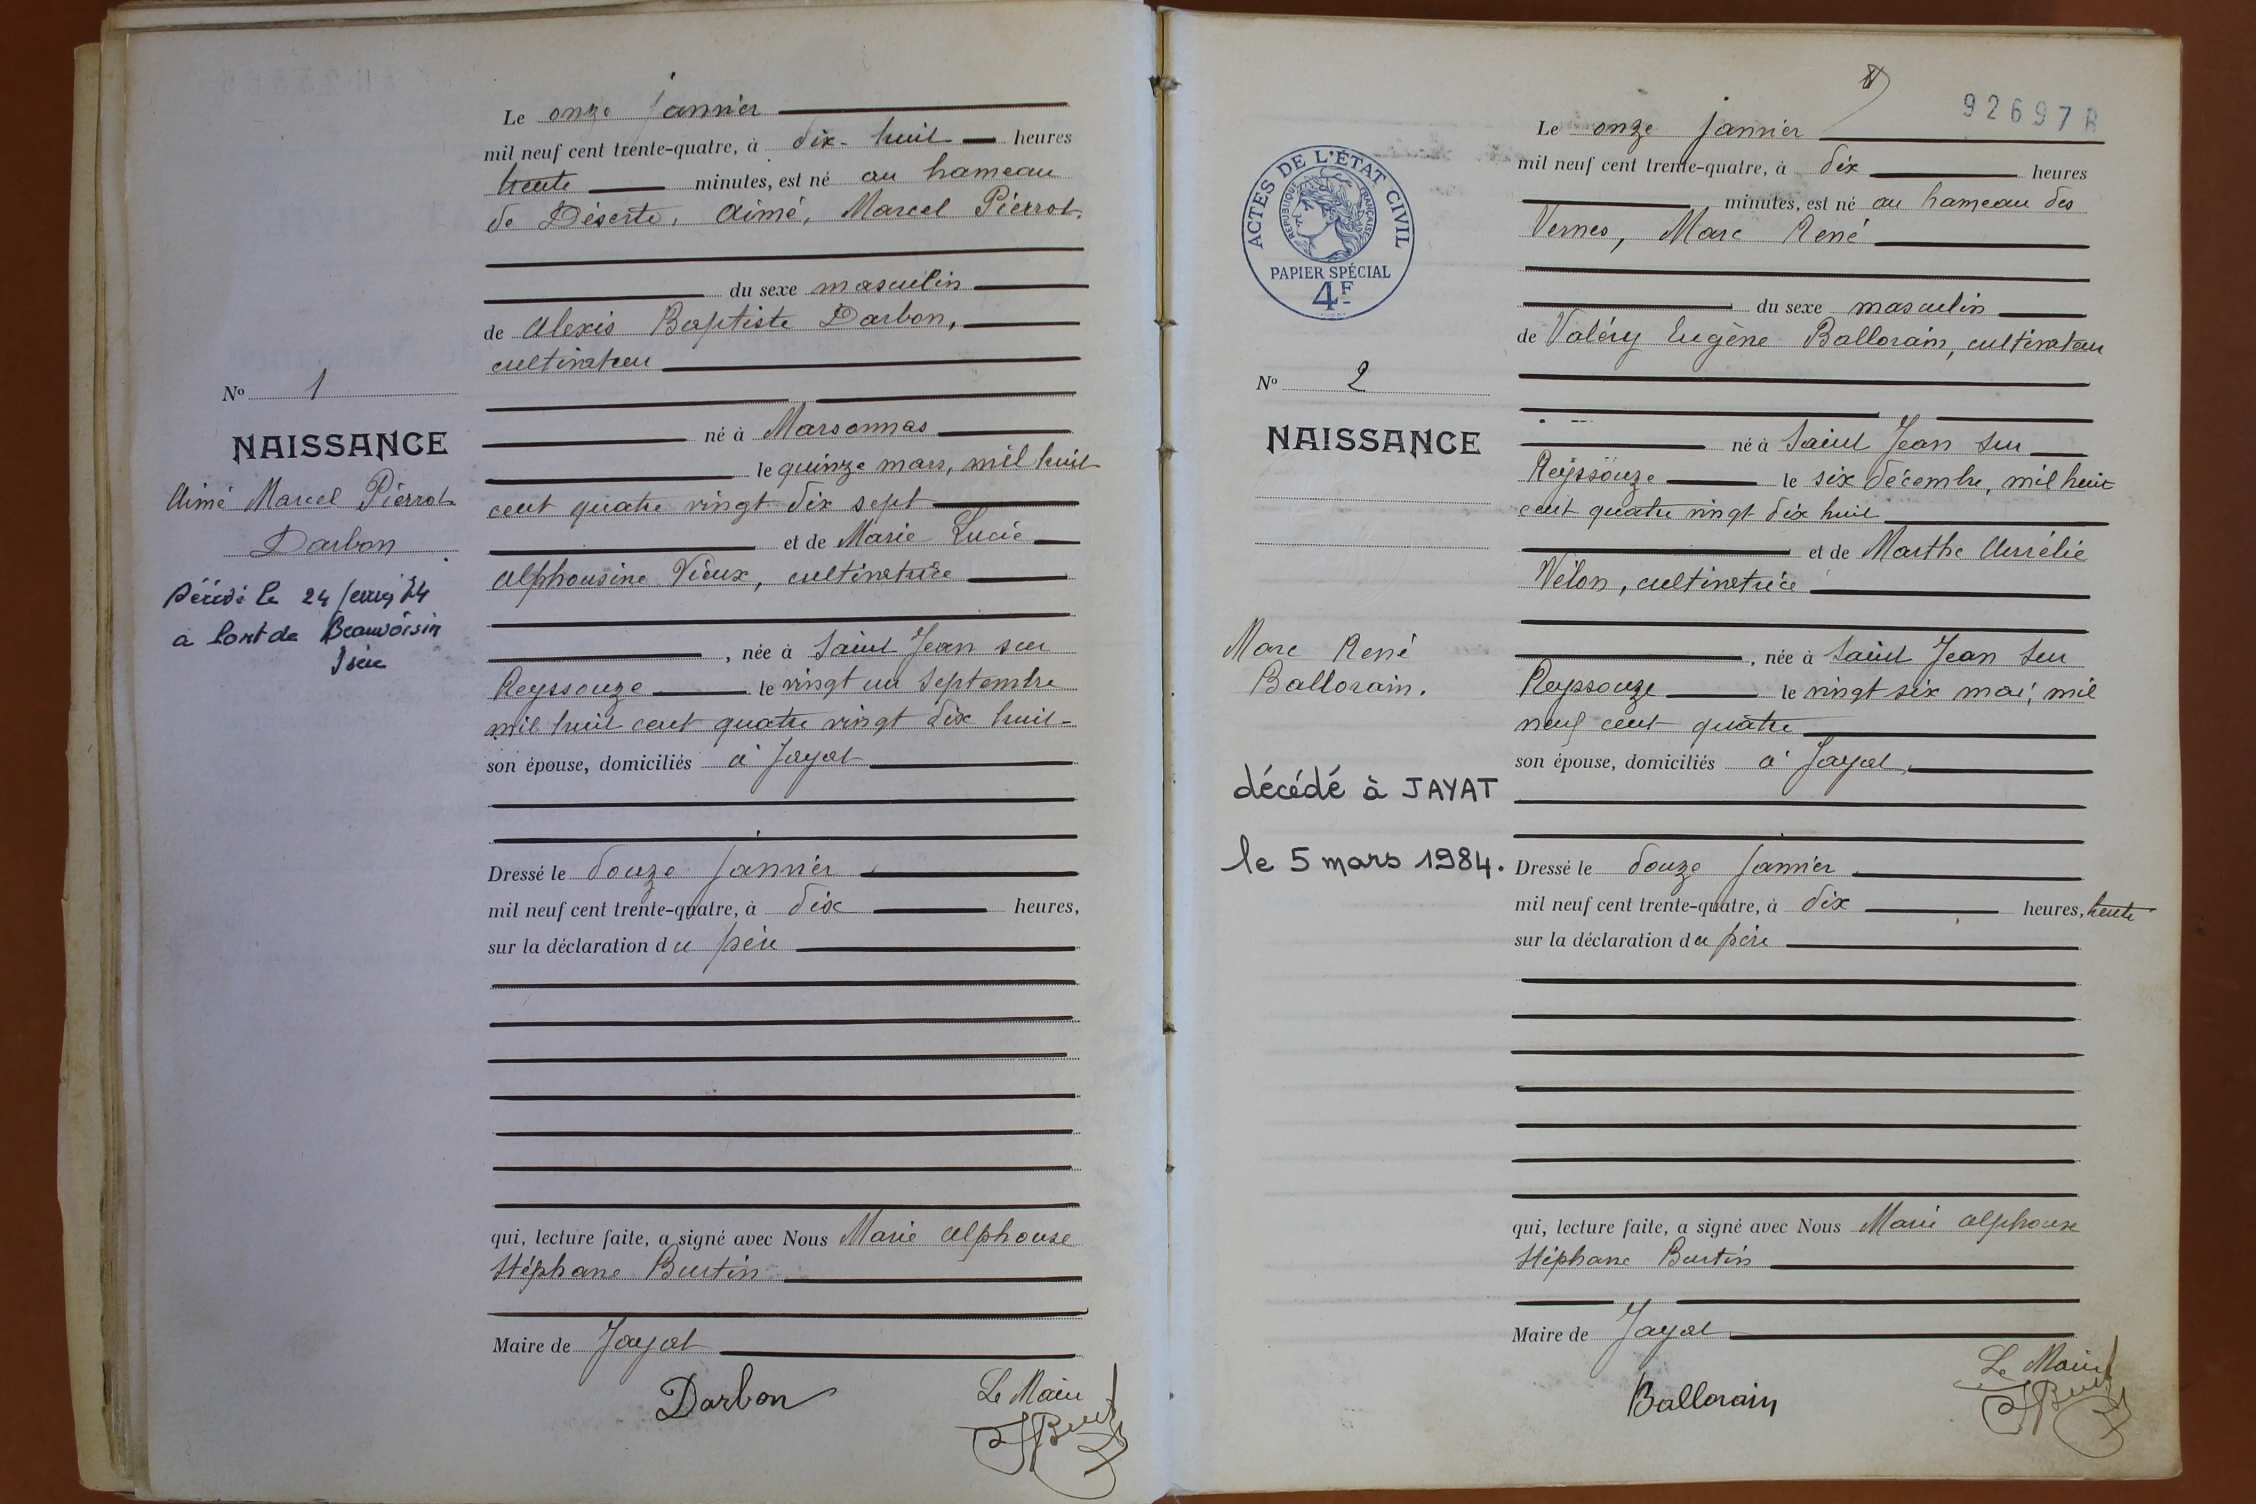 Le onze janvier
mil neuf cent trente-quatre, à dix-huit heures
trente minutes, est né au hameau
de Déserte, Aimé, Marcel Pierrot.
du sexe masculin
de Alexis Baptiste Darbon,
cultivateur
né à Marsonnas
le quinze mars, mil huit
cent quatre vingt dix sept
et de Marie Lucie
Alphonsine Vieux, cultivatrice
, née à Saint Jean sur
Reyssouze le vingt un septembre
mil huit cent quatre vingt dix huit
son épouse, domiciliés à Jayat
Dressé le douze janvier
mil neuf cent trente-quatre, à dix heures,
sur la déclaration du père
qui, lecture faite, a signé avec Nous Marie Alphonse
Stéphane Burtin
Maire de Jayat
Darbon
Le Maire
No 1
NAISSANCE
Aimé Marcel Pierrot
Darbon
Décédé le 24
a Pont de Beauvoisin
Isère
92697 B
Le onze janvier
mil neuf cent trente-quatre, à dix heures
minutes, est né au hameau des
Vernes, Marc René
du sexe masculin
de Valéry Eugène Ballorain, cultivateur
né à Saint Jean sur
Reyssouze le six décembre, mil huit
cent quatre vingt dix huit
et de Marthe Aurélie
Velon, cultivatrice
, née à Saint Jean sur
Reyssouze le vingt six mai, mil
neuf cent quatre
son épouse, domiciliés à Jayat,
Dressé le douze janvier
mil neuf cent trente-quatre, à dix heures, trente
sur la déclaration du père
qui, lecture faite, a signé avec Nous Marie Alphonse
Stéphane Burtin
Maire de Jayat
Ballorain
Le Maire
ACTES DE L'ÉTAT CIVIL
RÉPUBLIQUE FRANÇAISE
PAPIER SPÉCIAL
4F
No 2
NAISSANCE
Marc René
Ballorain.
décédé à JAYAT
le 5 mars 1984.